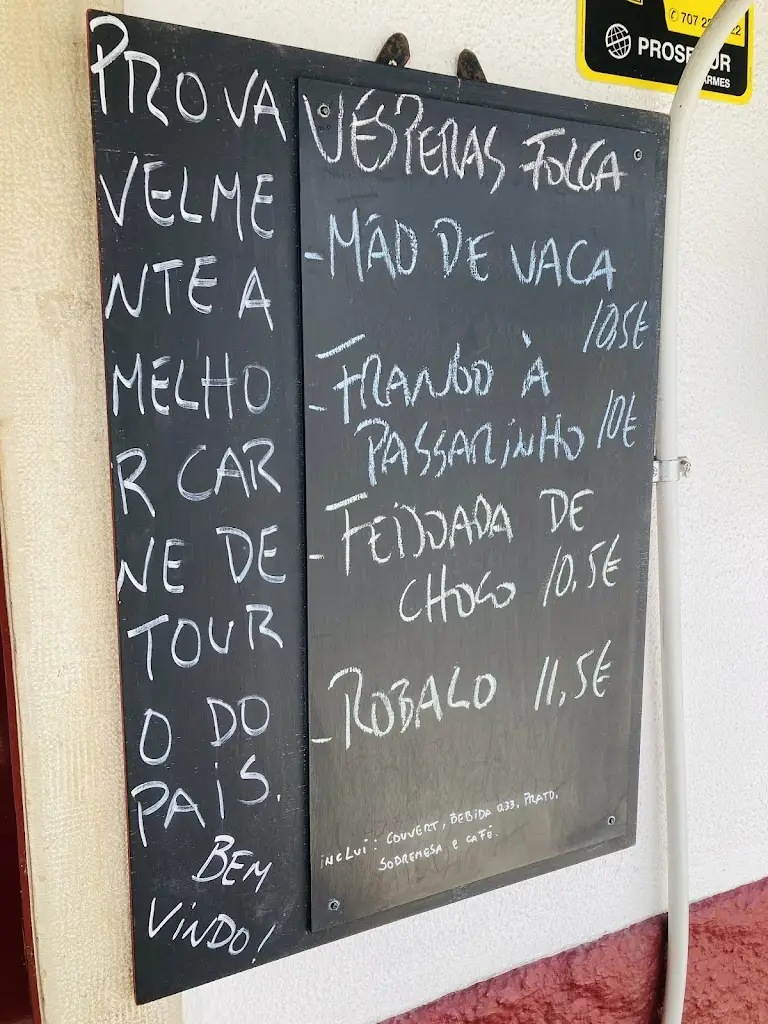 PROVA
VELME
NTE A
MELHO
R CAR
NE DE
TOUR
O DO
PAÍS.
BEM
VINDO!
VÉSPERAS FOLGA
-MÃO DE VACA
10,5€
-FRANGO À
PASSARINHO 10€
-FEIJOADA DE
CHOCO 10,5€
-ROBALO 11,5€
INCLUI: COUVERT, BEBIDA 0.33, PRATO,
SOBREMESA E CAFÉ.
707